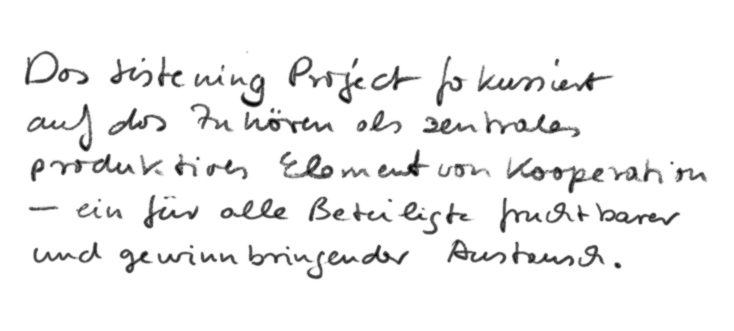 Das Listening Project fokussiert
auf das Zuhören als zentrales
produktives Element von Kooperation
– ein für alle Beteiligte fruchtbarer
und gewinnbringender Austausch.